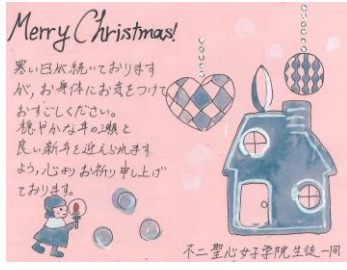 Merry Christmas!
寒い日が続いております
が、お身体にお気をつけて
おすごしください。
穏やかな年の瀬と
良い新年を迎えられます
よう、心よりお祈り申し上げ
ております。
不二聖心女子学院生徒一同